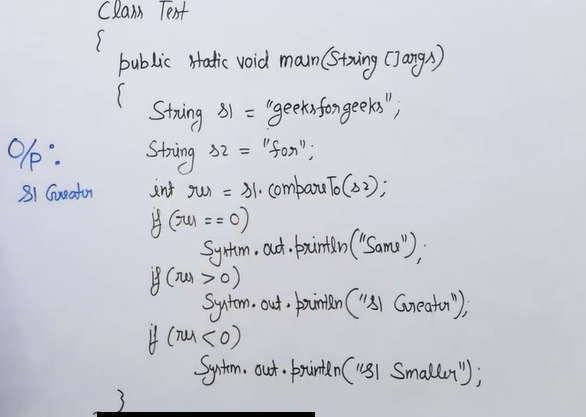 Class Test
{
public static void main(String []args)
{
String s1 = "geeksforgeeks";
String s2 = "for";
int res = s1.compareTo(s2);
if (res == 0)
System.out.println("Same");
if (res > 0)
System.out.println("S1 Greater");
if (res < 0)
System.out.println("S1 Smaller");
}
O/p:
S1 Greater